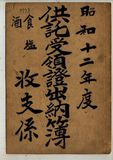 昭和十二年度
供託受領證出納簿
食塩
酒
收支係